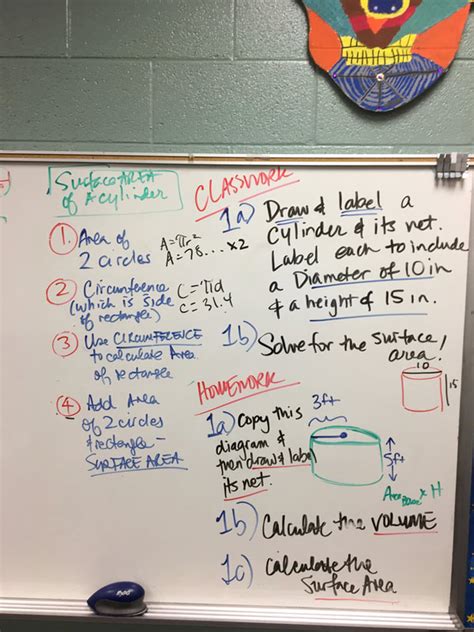 Surface AREA
of A cylinder
1. Area of
2 circles
A=πr²
A=78... x2
2 Circumference
(which is side
of rectangle)
C=πd
C=31.4
3 Use CIRCUMFERENCE
to calculate Area
of rectangle
4 Add Area
of 2 circles
& rectangle -
SURFACE AREA
CLASSWORK
1a) Draw & label a
cylinder & its net.
Label each to include
a Diameter of 10 in
& a height of 15 in.
1b) Solve for the surface
area.
10
15
HOMEWORK
1a) Copy this
diagram &
then draw & label
its net.
3ft
5ft
Area Base x H
1b) Calculate the VOLUME
1c) Calculate the
Surface Area